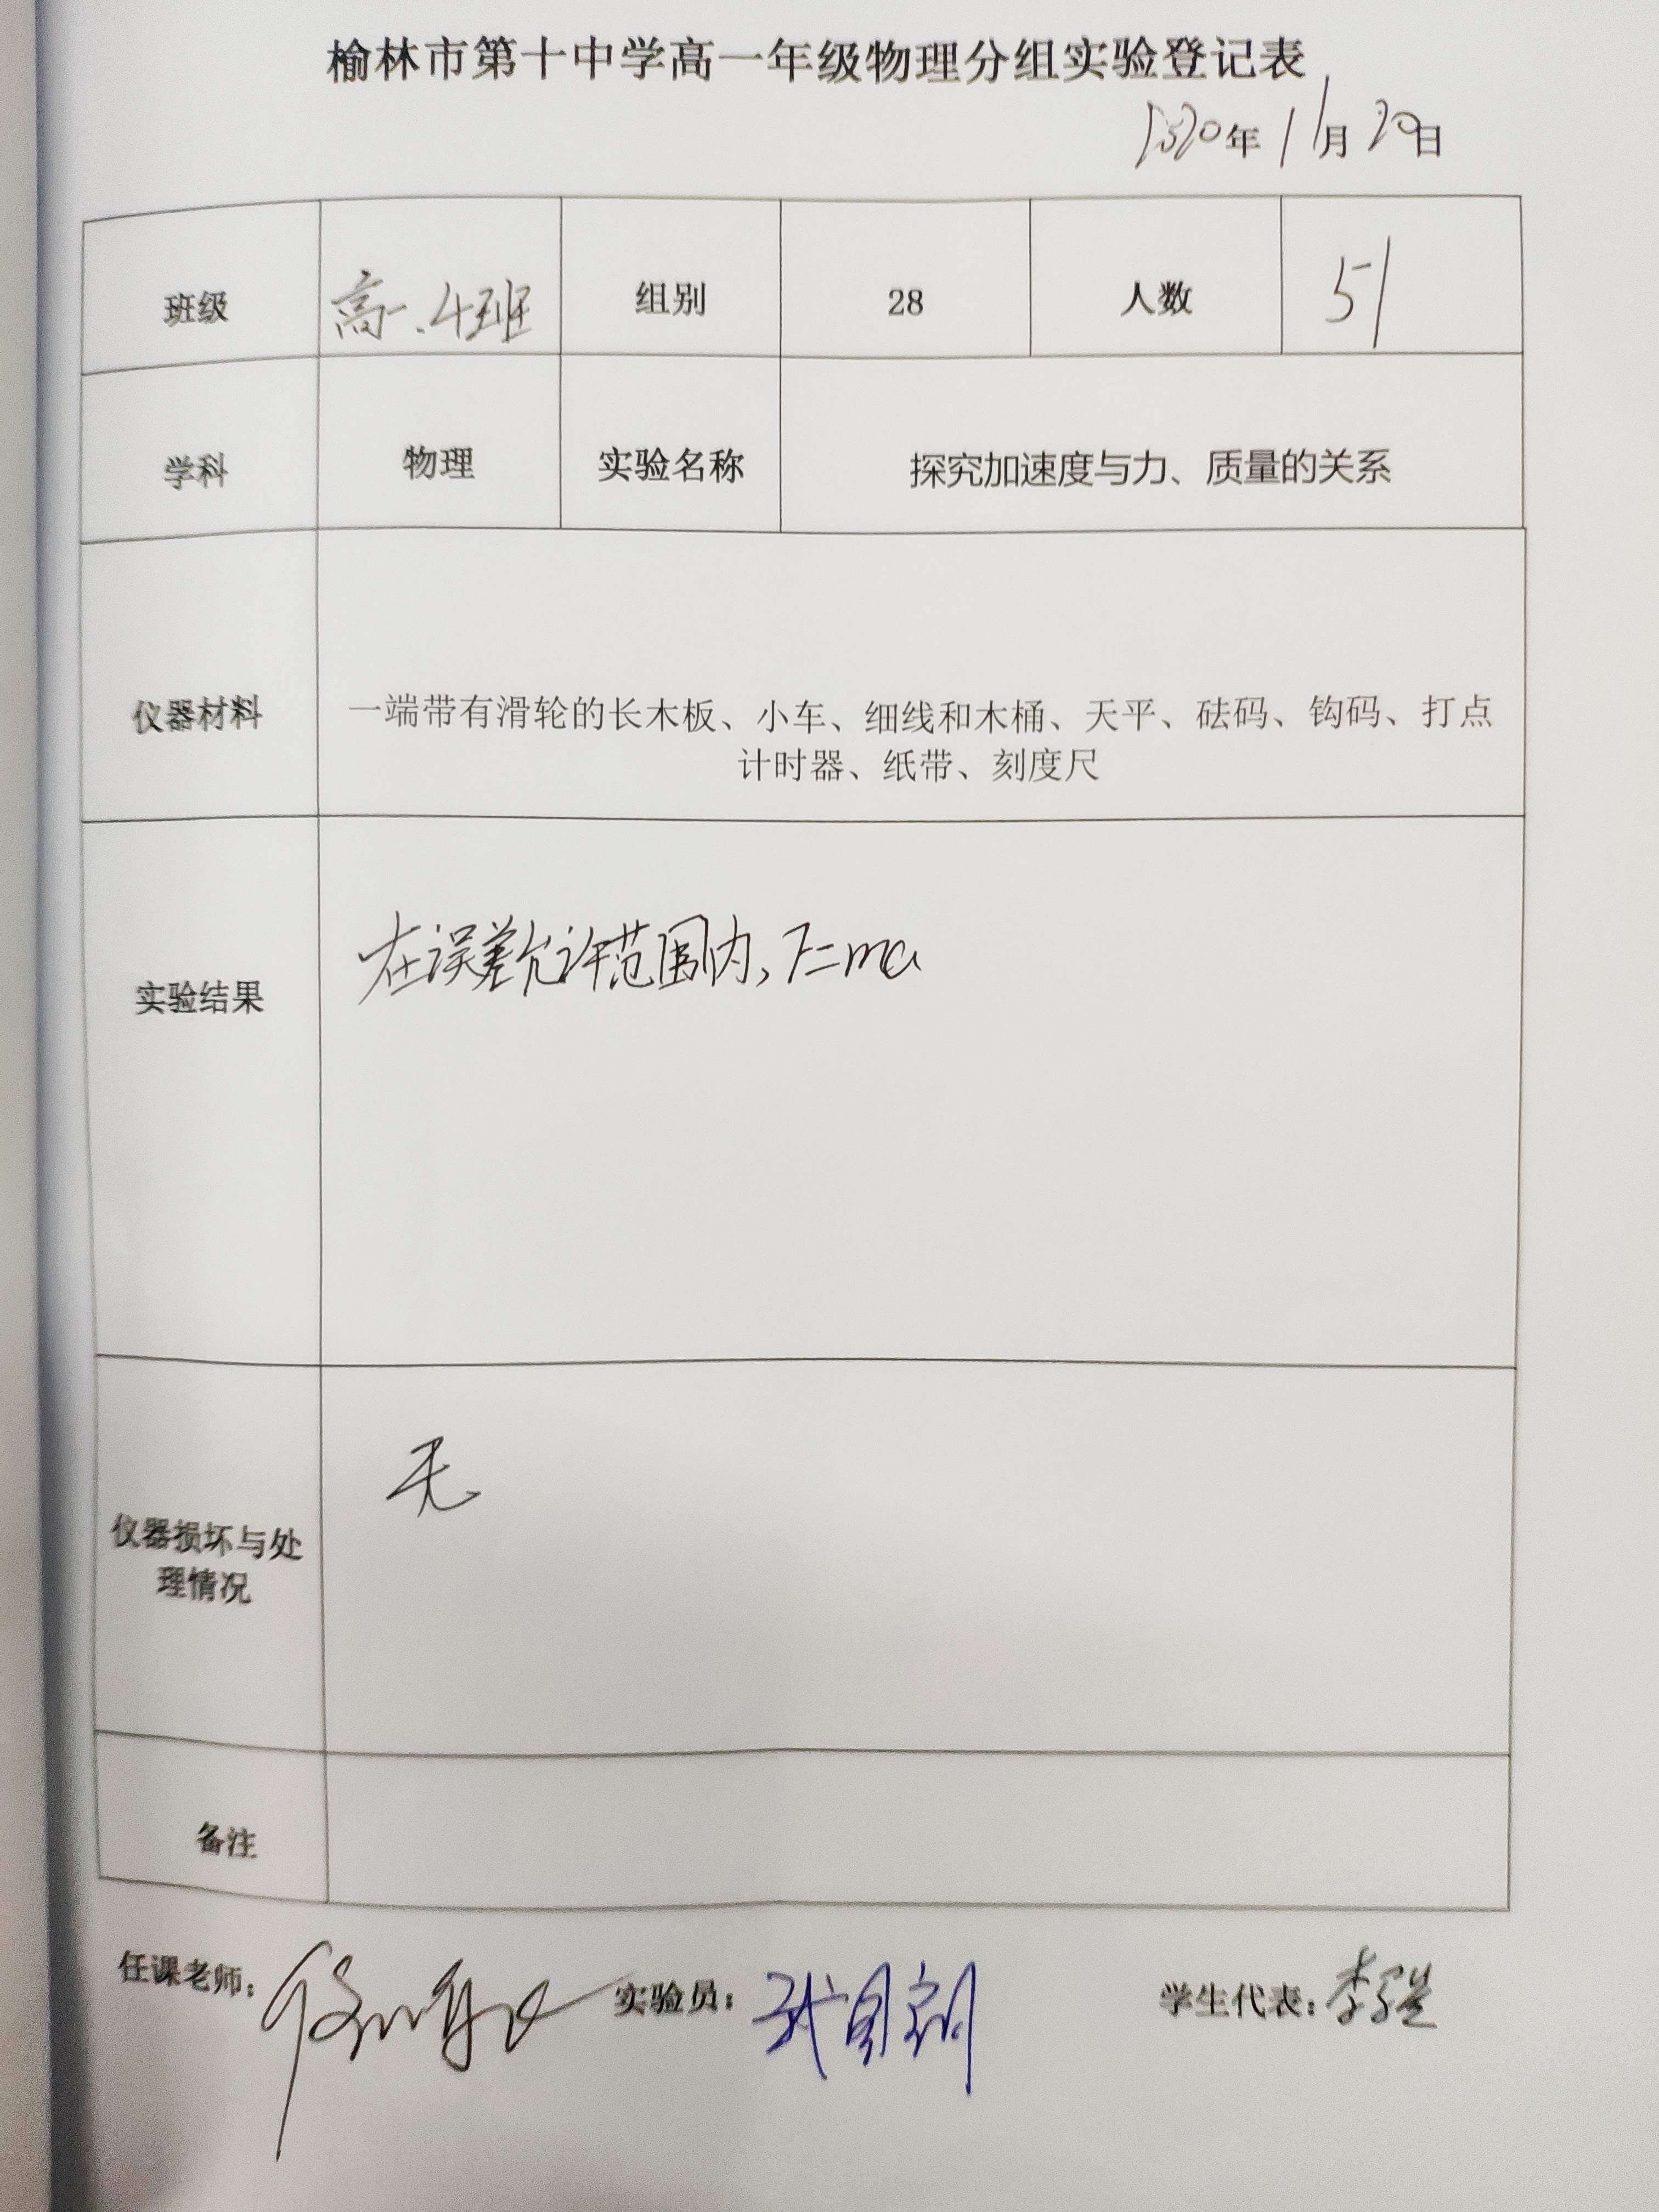 榆林市第十中学高一年级物理分组实验登记表
年11月20日
班级 高一.4班 组别 28 人数 51
学科 物理 实验名称 探究加速度与力、质量的关系
仪器材料 一端带有滑轮的长木板、小车、细线和木桶、天平、砝码、钩码、打点
计时器、纸带、刻度尺
实验结果 在误差允许范围内，F=ma
无
仪器损坏与处
理情况
备注
任课老师： 实验员： 学生代表：李